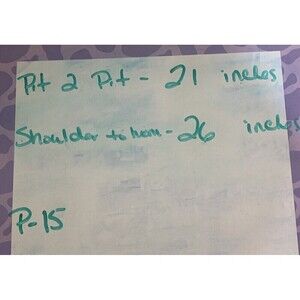 Pit 2 Pit - 21 inches
Shoulder to hem - 26 inches
P-15